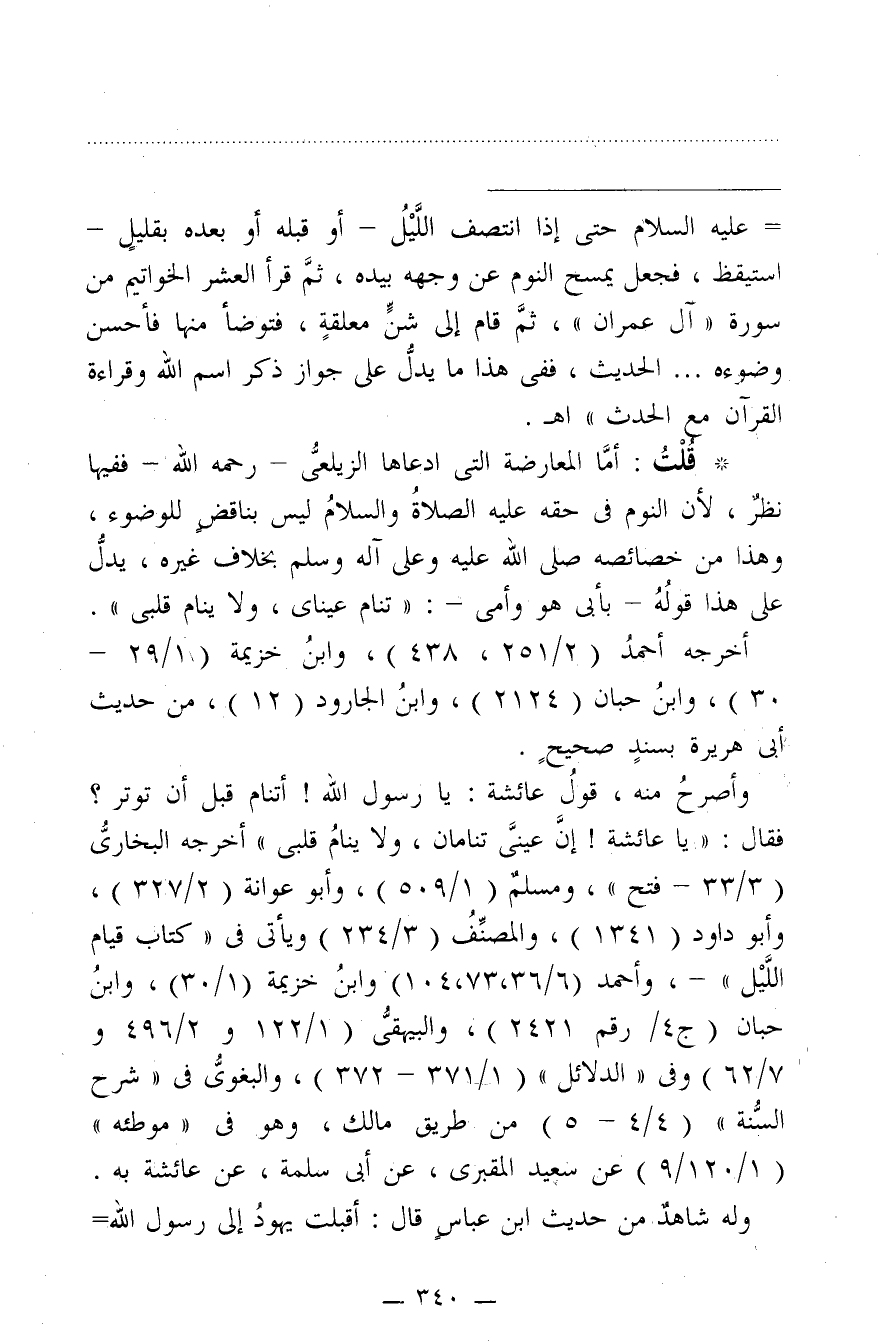 = عليه السلام حتى إذا انتصف اللَّيْلُ – أو قبله أو بعده بقليلٍ –
استيقظ ، فجعل يمسح النوم عن وجهه بيده ، ثمَّ قرأ العشر الخواتيم من
سورة « آل عمران » ، ثمَّ قام إلى شنٍّ معلقةٍ ، فتوضأ منها فأحسن
وضوءه ... الحديث ، ففى هذا ما يدلُّ على جواز ذكر اسم الله وقراءة
القرآن مع الحدث » اهـ .
* قُلْتُ : أمَّا المعارضة التى ادعاها الزيلعىُّ – رحمه الله – ففيها
نظرٌ ، لأن النوم فى حقه عليه الصلاةُ والسلامُ ليس بناقضٍ للوضوء ،
وهذا من خصائصه صلى الله عليه وعلى آله وسلم بخلاف غيره ، يدلُّ
على هذا قولُهُ – بأبى هو وأمى – : « تنام عيناى ، ولا ينام قلبى » .
أخرجه أحمدُ ( ٢٥١/٢ ، ٤٣٨ ) ، وابنُ خزيمة ( ٢٩/١ –
٣٠ ) ، وابنُ حبان ( ٢١٢٤ ) ، وابنُ الجارود ( ١٢ ) ، من حديث
أبى هريرة بسندٍ صحيحٍ .
وأصرحُ منه ، قولُ عائشة : يا رسول الله ! أتنام قبل أن توتر ؟
فقال : « يا عائشة ! إنَّ عينىَّ تنامان ، ولا ينامُ قلبى » أخرجه البخارىُّ
( ٣٣/٣ – فتح » ، ومسلمٌ ( ٥٠٩/١ ) ، وأبو عوانة ( ٣٢٧/٢ ) ،
وأبو داود ( ١٣٤١ ) ، والمصنِّفُ ( ٢٣٤/٣ ) ويأتى فى « كتاب قيام
اللَّيْل » – ، وأحمد (٣٦/٦،٧٣،١٠٤) وابنُ خزيمة (٣٠/١) ، وابنُ
حبان ( ج٤/ رقم ٢٤٢١ ) ، والبيهقىُّ ( ١٢٢/١ و ٤٩٦/٢ و
٦٢/٧ ) وفى « الدلائل » ( ٣٧١/١ – ٣٧٢ ) ، والبغوىُّ فى « شرح
السُّنة » ( ٤/٤ – ٥ ) من طريق مالك ، وهو فى « موطئه »
( ٩/١٢٠/١ ) عن سعيد المقبرى ، عن أبى سلمة ، عن عائشة به .
وله شاهدٌ من حديث ابن عباسٍ قال : أقبلت يهودُ إلى رسول الله=
– ٣٤٠ –